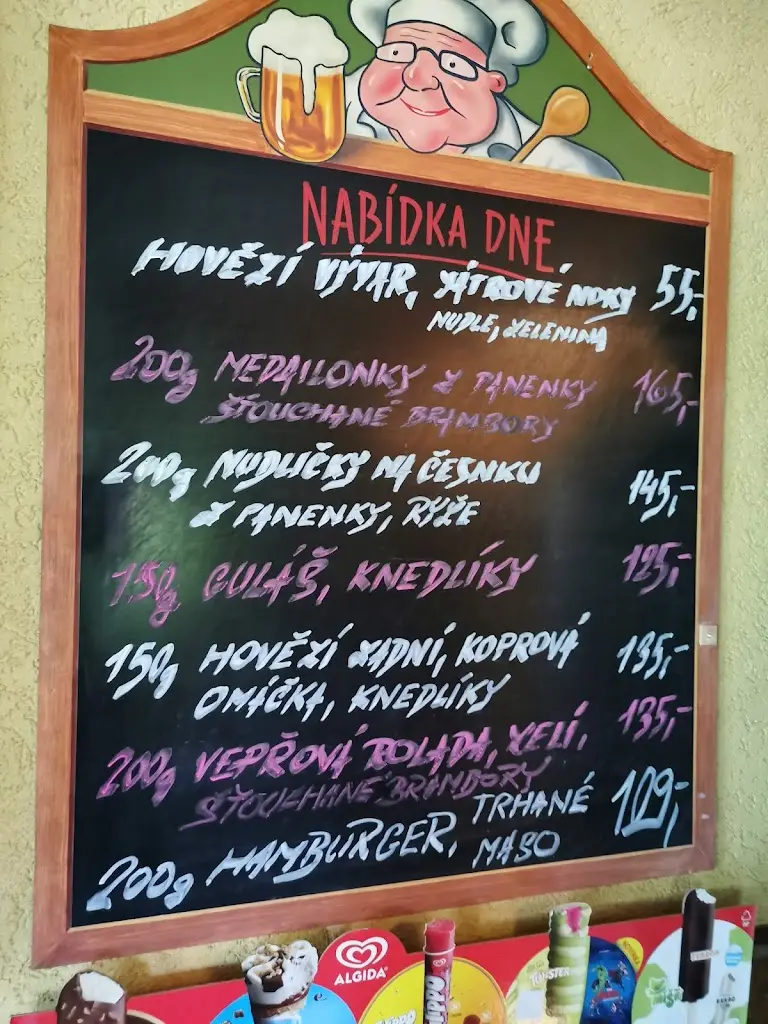 NABÍDKA DNE
HOVĚZÍ VÝVAR, JÁTROVÉ NOKY 55,-
NUDLE, ZELENINA
200g MEDAILONKY Z PANENKY 165,-
ŠŤOUCHANÉ BRAMBORY
200g NUDLIČKY NA ČESNKU
Z PANENKY, RÝŽE 145,-
150g GULÁŠ, KNEDLÍKY 125,-
150g HOVĚZÍ ZADNÍ, KOPROVÁ 135,-
OMÁČKA, KNEDLÍKY
200g VEPŘOVÁ ROLÁDA, ZELÍ, 135,-
ŠŤOUCHANÉ BRAMBORY
200g HAMBURGER, TRHANÉ 109,-
MASO
ALGIDA